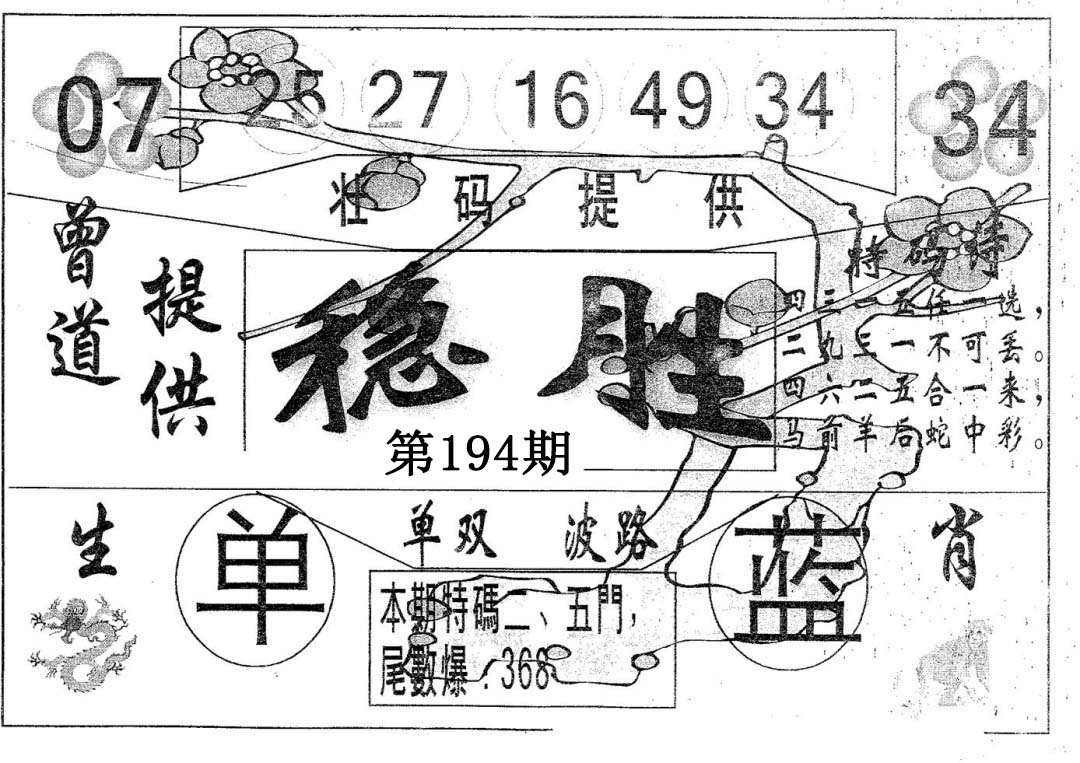 07 25 27 16 49 34 34
壮码提供
曾道
提供
稳胜
第194期
特码诗
四三一五任一选，
二九三一不可丢。
四六二五合一来，
马前羊后蛇中彩。
生肖
单
单双 波路
蓝
本期特碼二、五門，
尾數爆：368